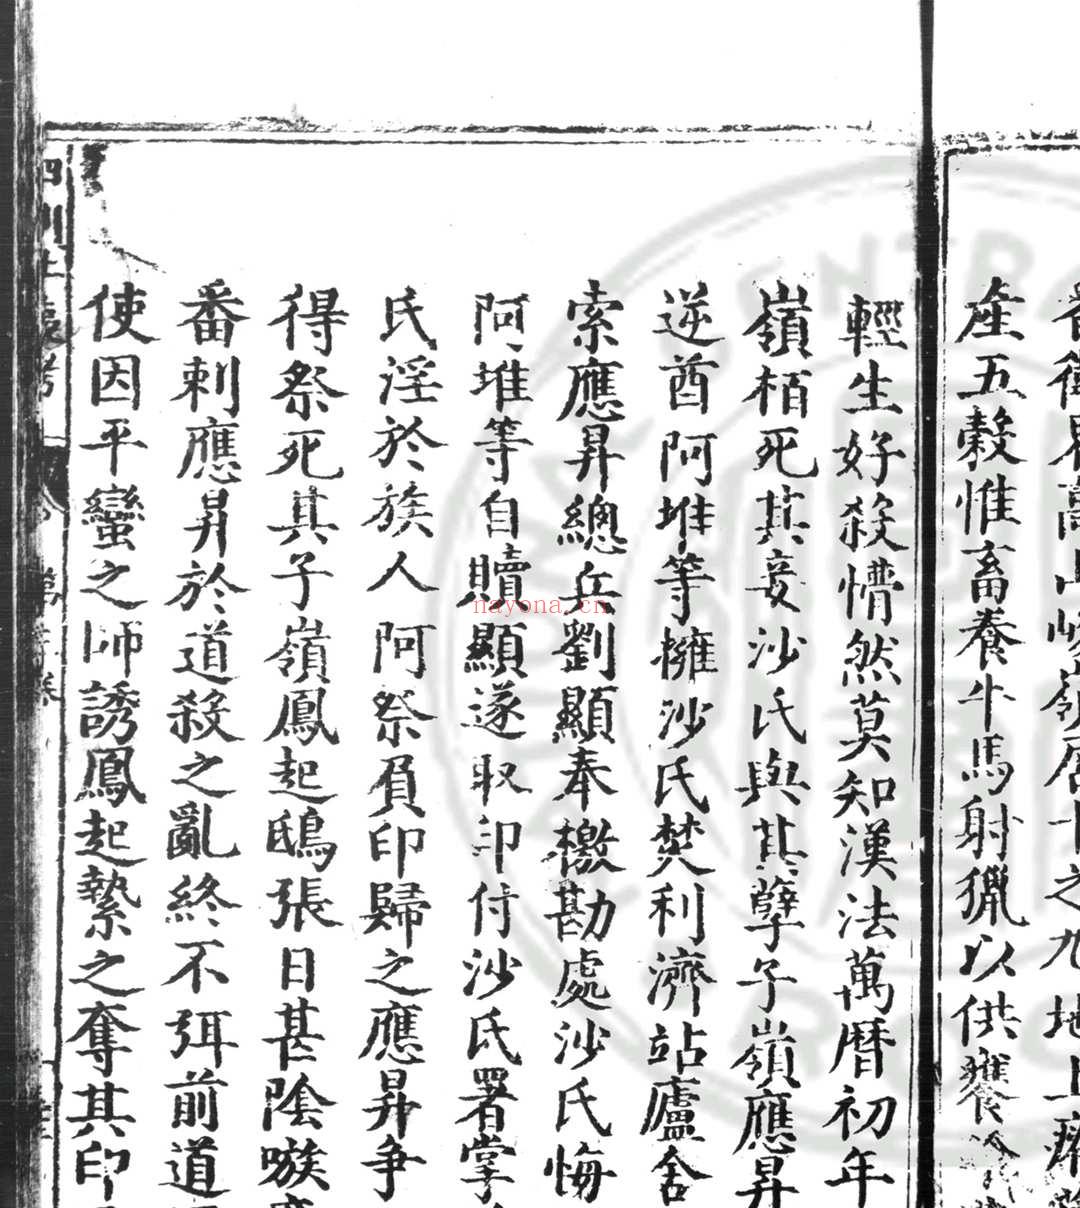 産五穀惟畜養牛馬射獵以供饔
輕生好殺懵然莫知漢法萬曆初年
嶺栢死其妾沙氏與其孽子嶺應昇
逆酋阿堆等擁沙氏焚利濟站廬舍
索應昇總兵劉顯奉檄勘處沙氏悔
阿堆等自贖顯遂取印付沙氏署掌
氏淫於族人阿祭負印歸之應昇争
得祭死其子嶺鳳起鴟張日甚陰嗾
番刺應昇於道殺之亂終不弭前道
使因平蠻之師誘鳳起縶之奪其印
四川土夷考
nayona.cn